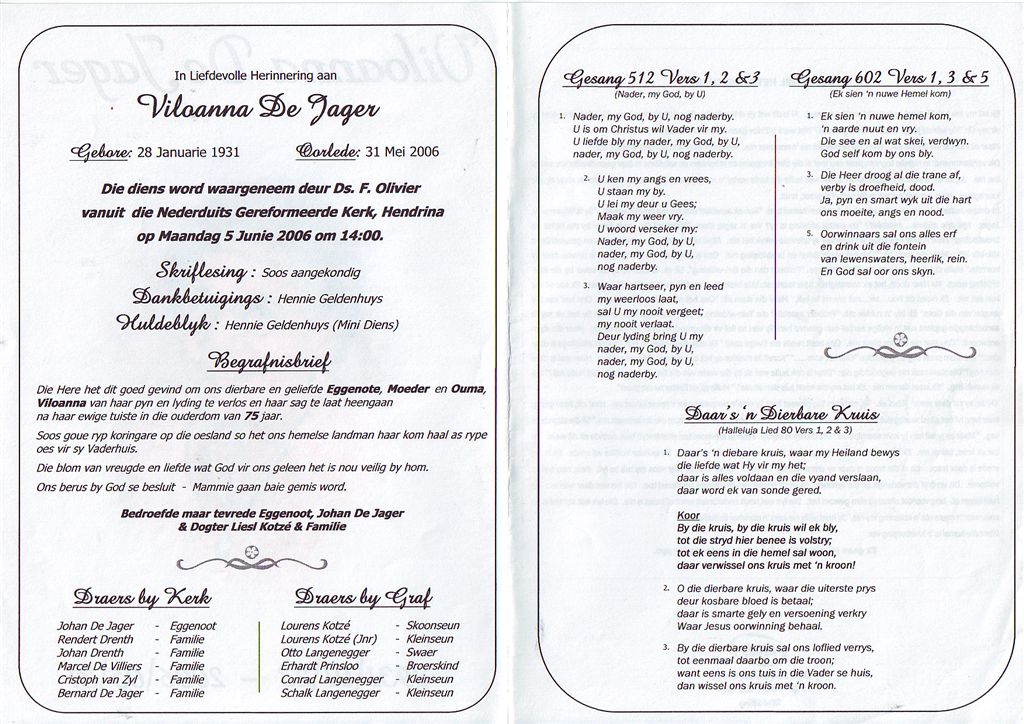 In Liefdevolle Herinnering aan
Viloanna De Jager
Gebore: 28 Januarie 1931 Oorlede: 31 Mei 2006
Die diens word waargeneem deur Ds. F. Olivier
vanuit die Nederduits Gereformeerde Kerk, Hendrina
op Maandag 5 Junie 2006 om 14:00.
Skriflesing : Soos aangekondig
Dankbetuigings : Hennie Geldenhuys
Huldeblyk : Hennie Geldenhuys (Mini Diens)
Begrafnisbrief
Die Here het dit goed gevind om ons dierbare en geliefde Eggenote, Moeder en Ouma,
Viloanna van haar pyn en lyding te verlos en haar sag te laat heengaan
na haar ewige tuiste in die ouderdom van 75 jaar.
Soos goue ryp koringare op die oesland so het ons hemelse landman haar kom haal as rype
oes vir sy Vaderhuis.
Die blom van vreugde en liefde wat God vir ons geleen het is nou veilig by hom.
Ons berus by God se besluit - Mammie gaan baie gemis word.
Bedroefde maar tevrede Eggenoot, Johan De Jager
& Dogter Liesl Kotzé & Familie
Draers by Kerk
Johan De Jager - Eggenoot
Rendert Drenth - Familie
Johan Drenth - Familie
Marcel De Villiers - Familie
Cristoph van Zyl - Familie
Bernard De Jager - Familie
Draers by Graf
Lourens Kotzé - Skoonseun
Lourens Kotzé (Jnr) - Kleinseun
Otto Langenegger - Swaer
Erhardt Prinsloo - Broerskind
Conrad Langenegger - Kleinseun
Schalk Langenegger - Kleinseun
Gesang 512 Vers 1, 2 &3
(Nader, my God, by U)
1. Nader, my God, by U, nog naderby.
U is om Christus wil Vader vir my.
U liefde bly my nader, my God, by U,
nader, my God, by U, nog naderby.
2. U ken my angs en vrees,
U staan my by.
U lei my deur u Gees;
Maak my weer vry.
U woord verseker my:
Nader, my God, by U,
nader, my God, by U,
nog naderby.
3. Waar hartseer, pyn en leed
my weerloos laat,
sal U my nooit vergeet;
my nooit verlaat.
Deur lyding bring U my
nader, my God, by U,
nader, my God, by U,
nog naderby.
Gesang 602 Vers 1, 3 & 5
(Ek sien 'n nuwe Hemel kom)
1. Ek sien 'n nuwe hemel kom,
'n aarde nuut en vry.
Die see en al wat skei, verdwyn.
God self kom by ons bly.
3. Die Heer droog al die trane af,
verby is droefheid, dood.
Ja, pyn en smart wyk uit die hart
ons moeite, angs en nood.
5. Oorwinnaars sal ons alles erf
en drink uit die fontein
van lewenswaters, heerlik, rein.
En God sal oor ons skyn.
Daar's 'n Dierbare Kruis
(Halleluja Lied 80 Vers 1, 2 & 3)
1. Daar's 'n diebare kruis, waar my Heiland bewys
die liefde wat Hy vir my het;
daar is alles voldaan en die vyand verslaan,
daar word ek van sonde gered.
Koor
By die kruis, by die kruis wil ek bly,
tot die stryd hier benee is volstry;
tot ek eens in die hemel sal woon,
daar verwissel ons kruis met 'n kroon!
2. O die dierbare kruis, waar die uiterste prys
deur kosbare bloed is betaal;
daar is smarte gely en versoening verkry
Waar Jesus oorwinning behaal.
3. By die dierbare kruis sal ons loflied verrys,
tot eenmaal daarbo om die troon;
want eens is ons tuis in die Vader se huis,
dan wissel ons kruis met 'n kroon.